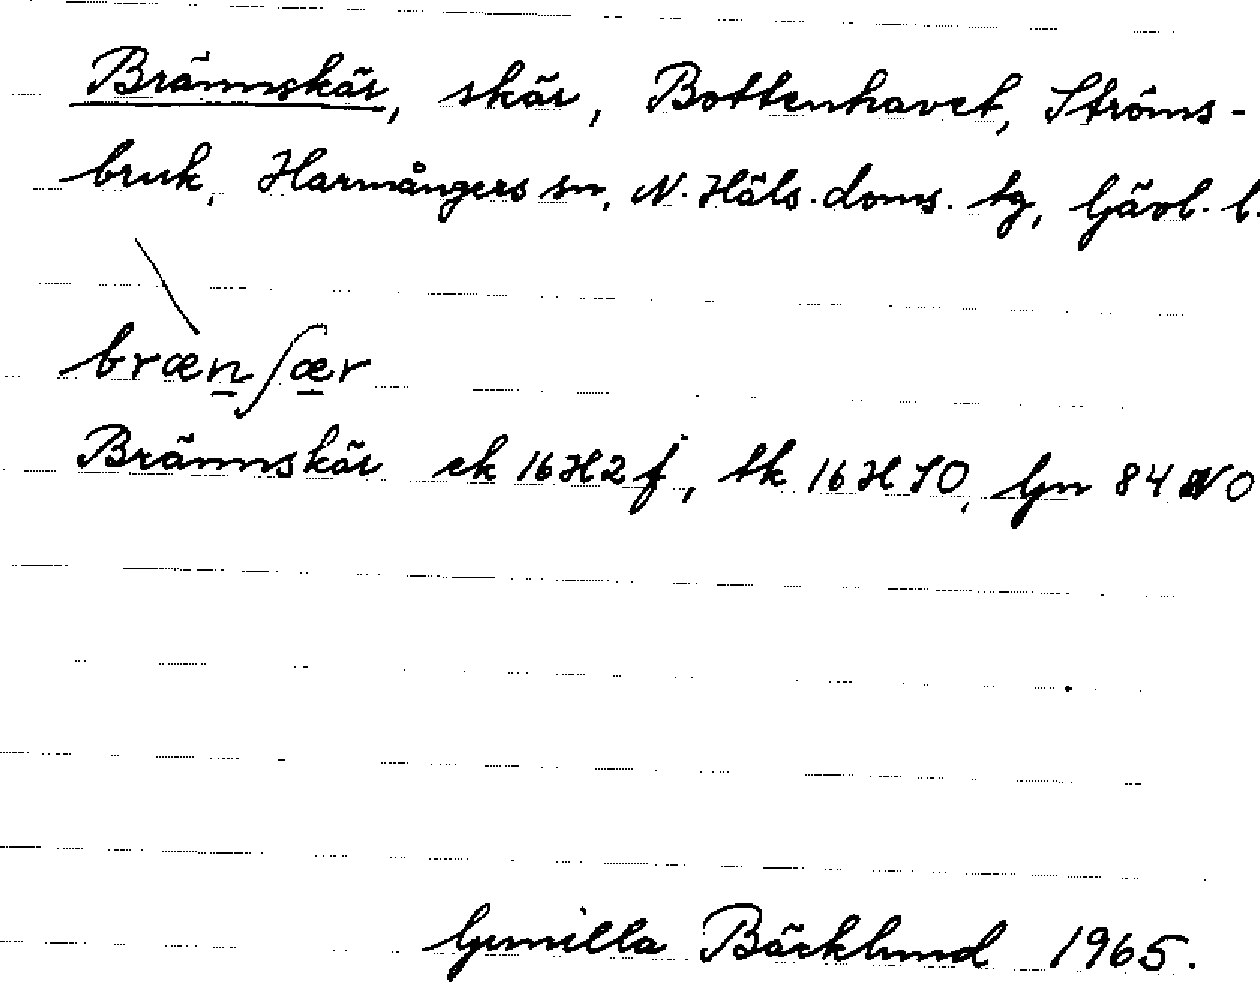 Brännskär, skär, Bottenhavet, Ströms-
bruk, Harmångers sn, N. Häls. doms. tg, Gävl. l.
brænʃær
Brännskär ek 16H2f, tk 16H SO, Gn 84 NO
Gunilla Bäcklund 1965.